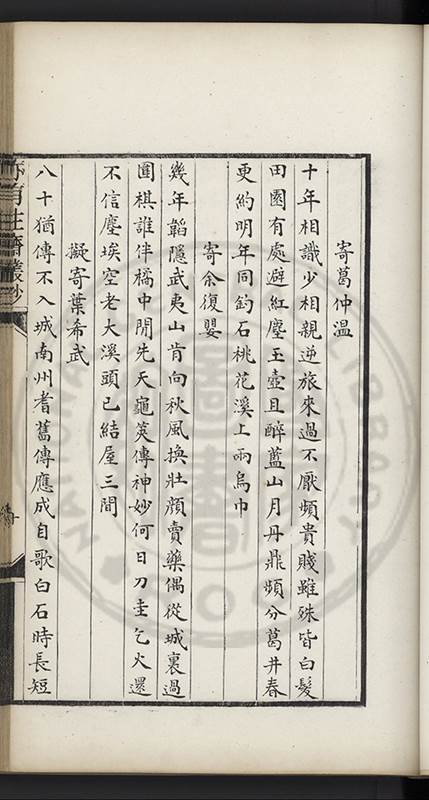 寄葛仲溫
十年相識少相親逆旅來過不厭頻貴賤雖殊皆白髮
田園有處避紅塵玉壺且醉藍山月丹鼎頻分葛井春
更約明年同釣石桃花溪上雨烏巾
寄余復嬰
幾年韜隱武夷山肯向秋風換壯顏賣藥偶從城裏過
圍棋誰伴橘中閒先天龜筴傳神妙何日刀圭乞火還
不信塵埃空老大溪頭已結屋三間
擬寄葉希武
八十猶傳不入城南州耆舊傳應成自歌白石時長短